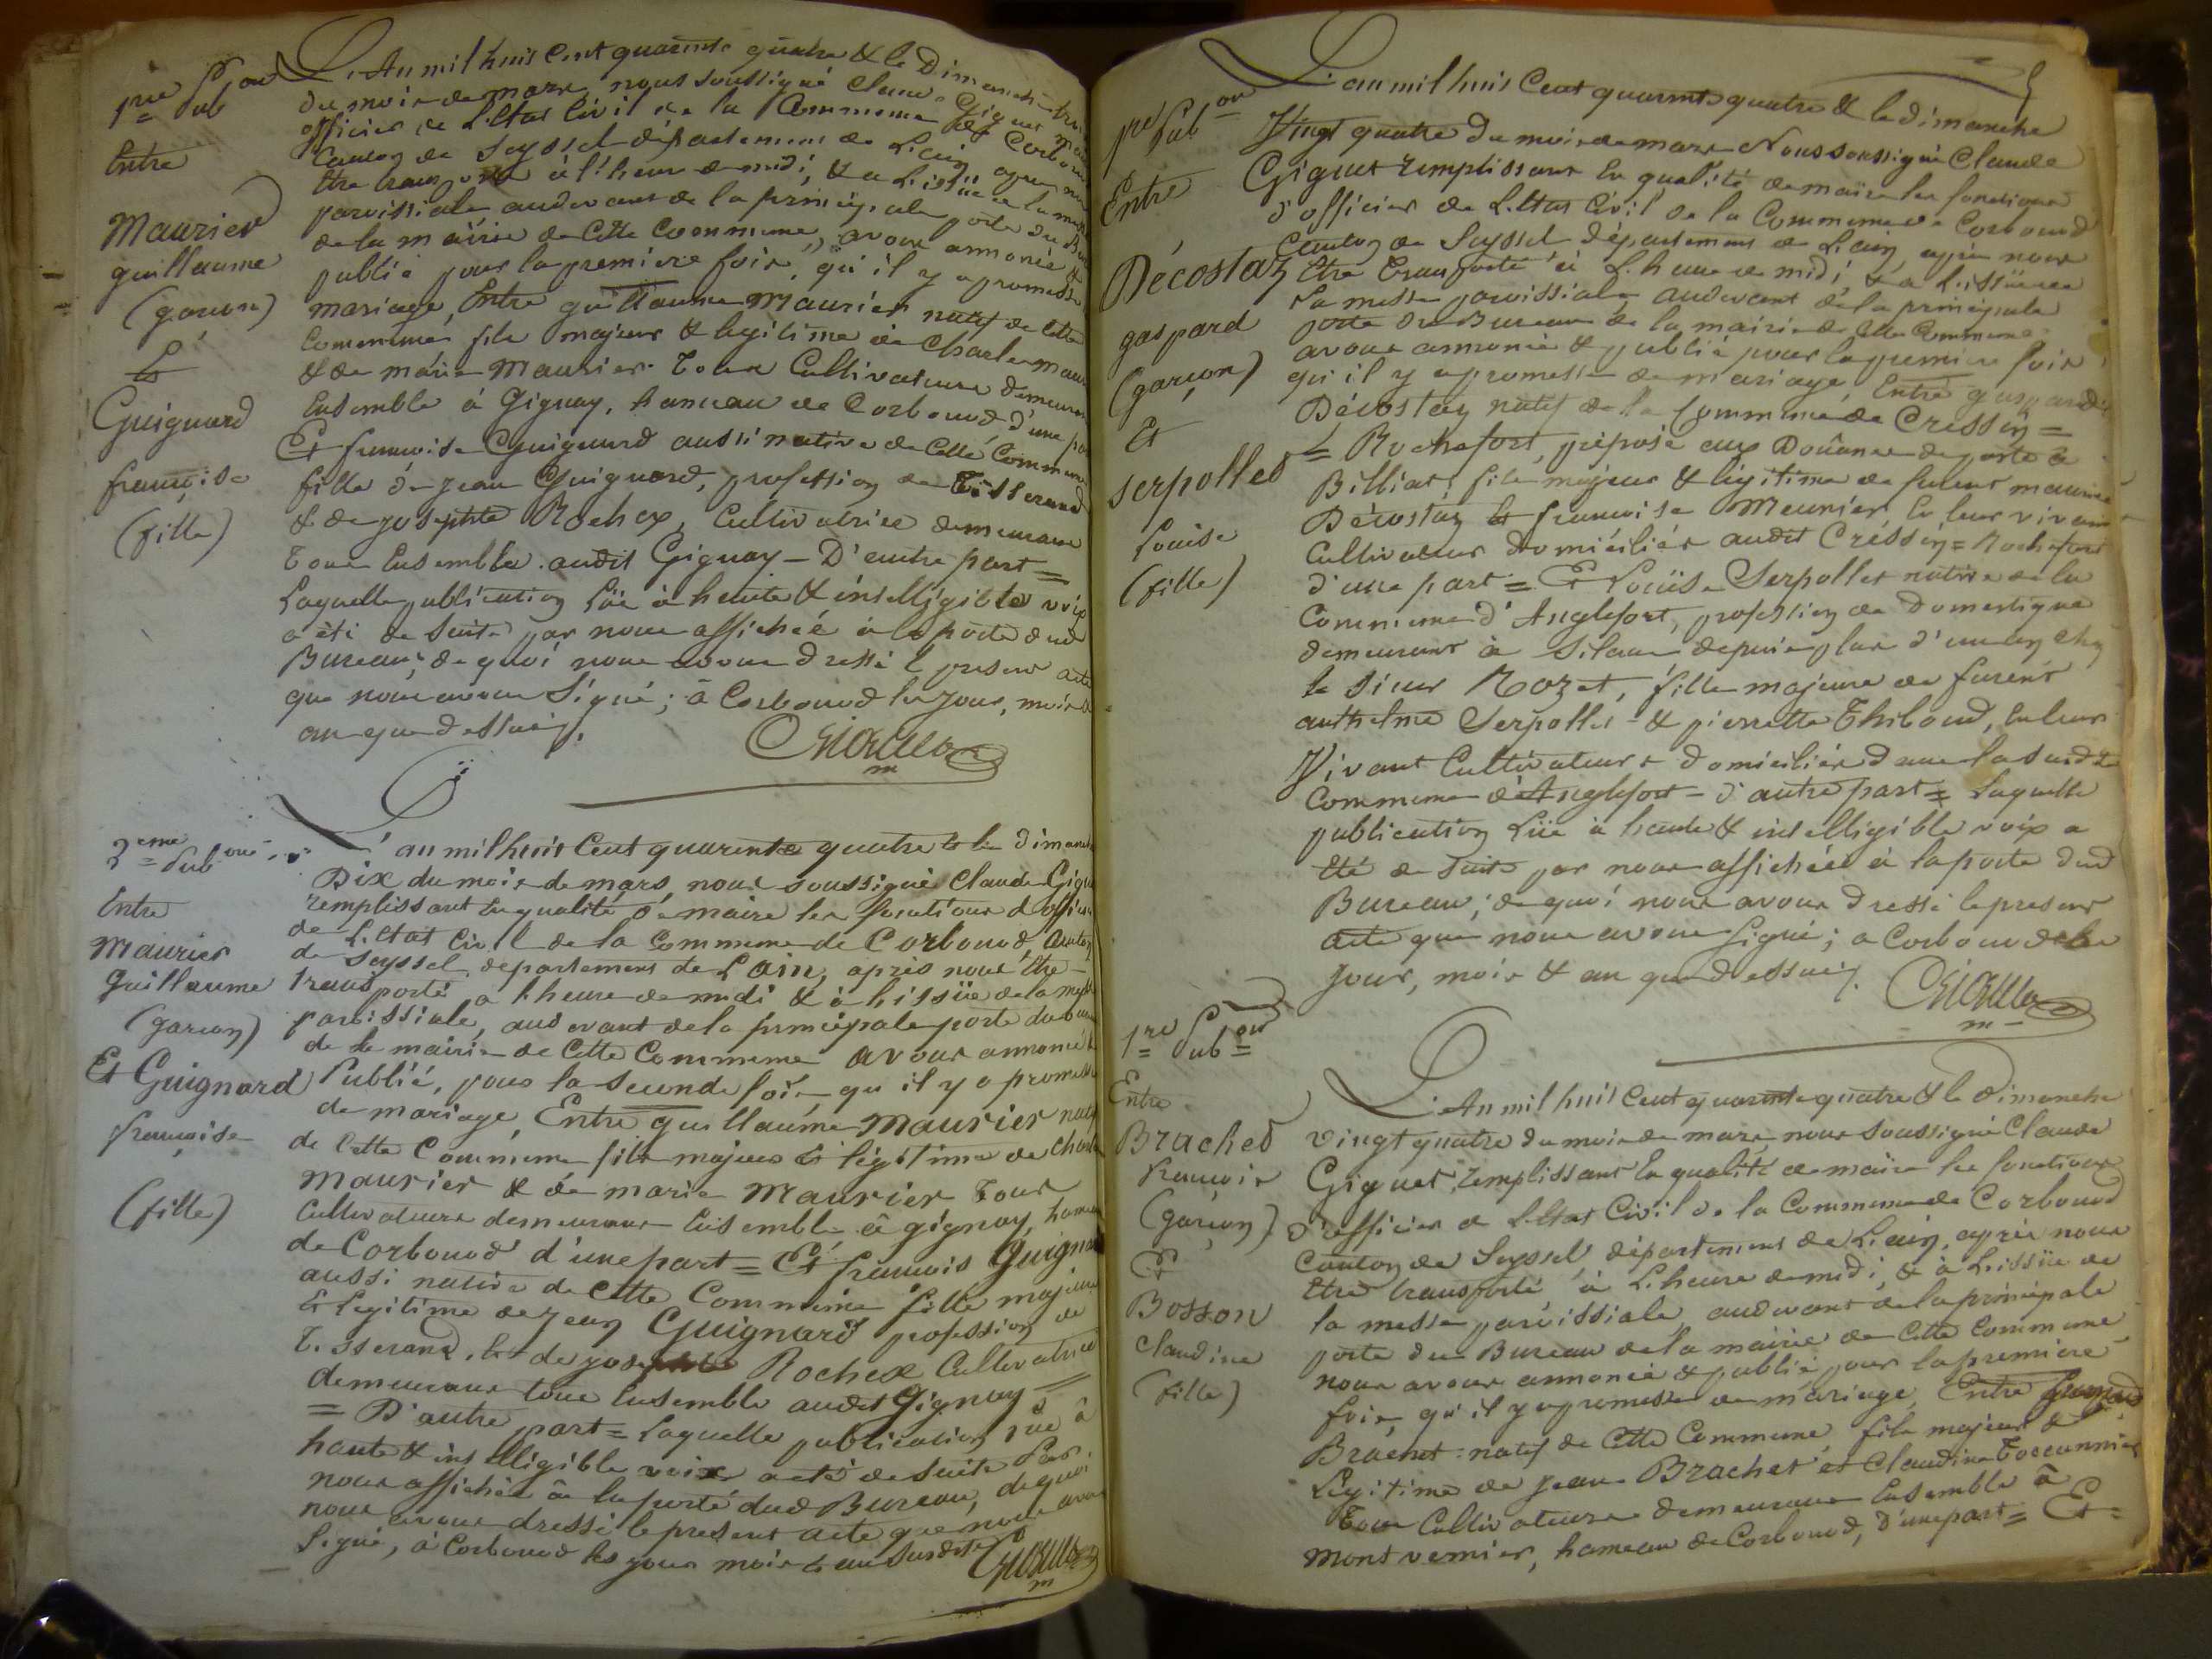 1re Pub on
Entre
Maurier
guillaume
(garcon)
Et
Guignard
françoise
(fille)
L'An mil huit Cent quarente quatre & le Dimanche
du mois de mars, nous soussigné Claude Giguet
officier de L'Etat Civil de la Commune de Corbonod
Canton de Seyssel département de L'ain, après nous
Etre transporté à l'heure de midi, & a L'issüe de la messe
paroissiale audevant de la principale porte du
de la mairie de Cette Commune, avons annoncé &
publié pour la premiere fois, qu'il y a promesse
mariage, Entre guillaume Maurier natif de Cette
Commune, fils majeur & legitime de Charles
& de marie Maurier. tous Cultivateurs demeurant
Ensemble à Gignay, hameau de Corbonod d'une part
Et françoise Guignard aussi native de Cette Commune
fille de jean Guignard, profession de Tisserand
& de josephte Rochex, Cultivatrice demeurant
tous Ensemble audit Gignay – D'autre part =
Laquelle publication Lüe à haute & intelligible voix
a été de suite par nous affichée à la porte dud
Bureau, de quoi nous avons dressé le present acte
que nous avons Signé; à Corbonod les jour, mois &
an que dessus.
2eme Pub on
Entre
Maurier
Guillaume
(garcon)
Et Guignard
françoise
(fille)
L'an mil huit Cent quarente quatre & le dimanche
Dix du mois de mars, nous soussigné Claude Giguet
remplissant En qualité de maire les fonctions d'officier
de L'Etat Civil de la Commune de Corbonod, Canton
de Seyssel, departement de L'ain, après nous être
transporté a l'heure de midi & à L'issüe de la messe
paroissiale, audevant de la principale porte du bureau
de la mairie de Cette Commune avons annoncé &
Publié, pour la seconde fois, qu'il y a promesse
de mariage, Entre guillaume Maurier natif
de Cette Commune fils majeur & légitime de Charles
Maurier & de marie Maurier tous
Cultivateurs demeurant Ensemble à gignay, hameau
de Corbonod d'une part = Et françois Guignard
aussi native de Cette Commune fille majeure
& legitime de jean Guignard profession de
Tisserand, & de josephte Rochex Cultivatrice
demeurant tous Ensemble audit Gignay =
= D'autre part = Laquelle publication Lüe à
haute & intelligible voix a été de suite Par
nous affichée à la porte dud Bureau, de quoi
nous avons dressé le present acte que nous avons
Signé, à Corbonod les jour mois & an susdits
1re Pub on
Entre
Décostaz
gaspard
(garçon)
Et
serpollet
Louise
(fille)
L'an mil huit Cent quarente quatre & le dimanche
Vingt quatre du mois de mars Nous soussigné Claude
Giguet remplissant En qualité de maire les fonctions
d'officier de L'Etat Civil de la Commune de Corbonod
Canton de Seyssel département de L'ain, après nous
Etre transporté à L'heure de midi, & a L'issüe de
la messe paroissiale, audevant de la principale
porte du Bureau de la mairie de Cette Commune
avons annoncé & publié pour la premiere fois
qu'il y a promesse de mariage, Entre gaspard
Décostaz natif de la Commune de Cressin =
= Rochefort, préposé aux Douanes de poste à
Billiat, fils majeur & légitime de furent maurice
Décostaz & françoise Meunier En leur vivant
Cultivateurs domiciliés audit Cressin = Rochefort
d'une part = Et Louise Serpollet native de la
Commune d'Anglefort, profession de Domestique
demeurant à Silans depuis plus d'un an chez
le sieur Rozet, fille majeure de furent
anthelme Serpollet & pierrette Thiboud, En leur
Vivant Cultivateurs domiciliés dans la susdite
Commune d'Anglefort – d'autre part = Laquelle
publication Lüe à haute & intelligible voix a
Eté de suite par nous affichée à la porte dud
Bureau; de quoi nous avons dressé le present
acte que nous avons signé; a Corbonod les
jour, mois & an que dessus.
1re Pub on
Entre
Brachet
françois
(garçon)
Et
Bosson
Claudine
(fille)
L'An mil huit Cent quarente quatre & le dimanche
vingt quatre du mois de mars, nous soussigné Claude
Giguet, remplissant En qualité de maire les fonctions
d'officier de L'Etat Civil de la Commune de Corbonod
Canton de Seyssel, département de L'ain, après nous
Etre transporté à L'heure de midi, & à L'issüe de
la messe paroissiale, audevant de la principale
porte du Bureau de la mairie de Cette Commune
nous avons annoncé & publié pour la premiere
fois qu'il y a promesse de mariage, Entre
Brachet natif de Cette Commune fils majeur &
Légitime de jean Brachet et Claudine
Tous Cultivateurs demeurant Ensemble à
Montvernier, hameau de Corbonod, d'une part = Et =